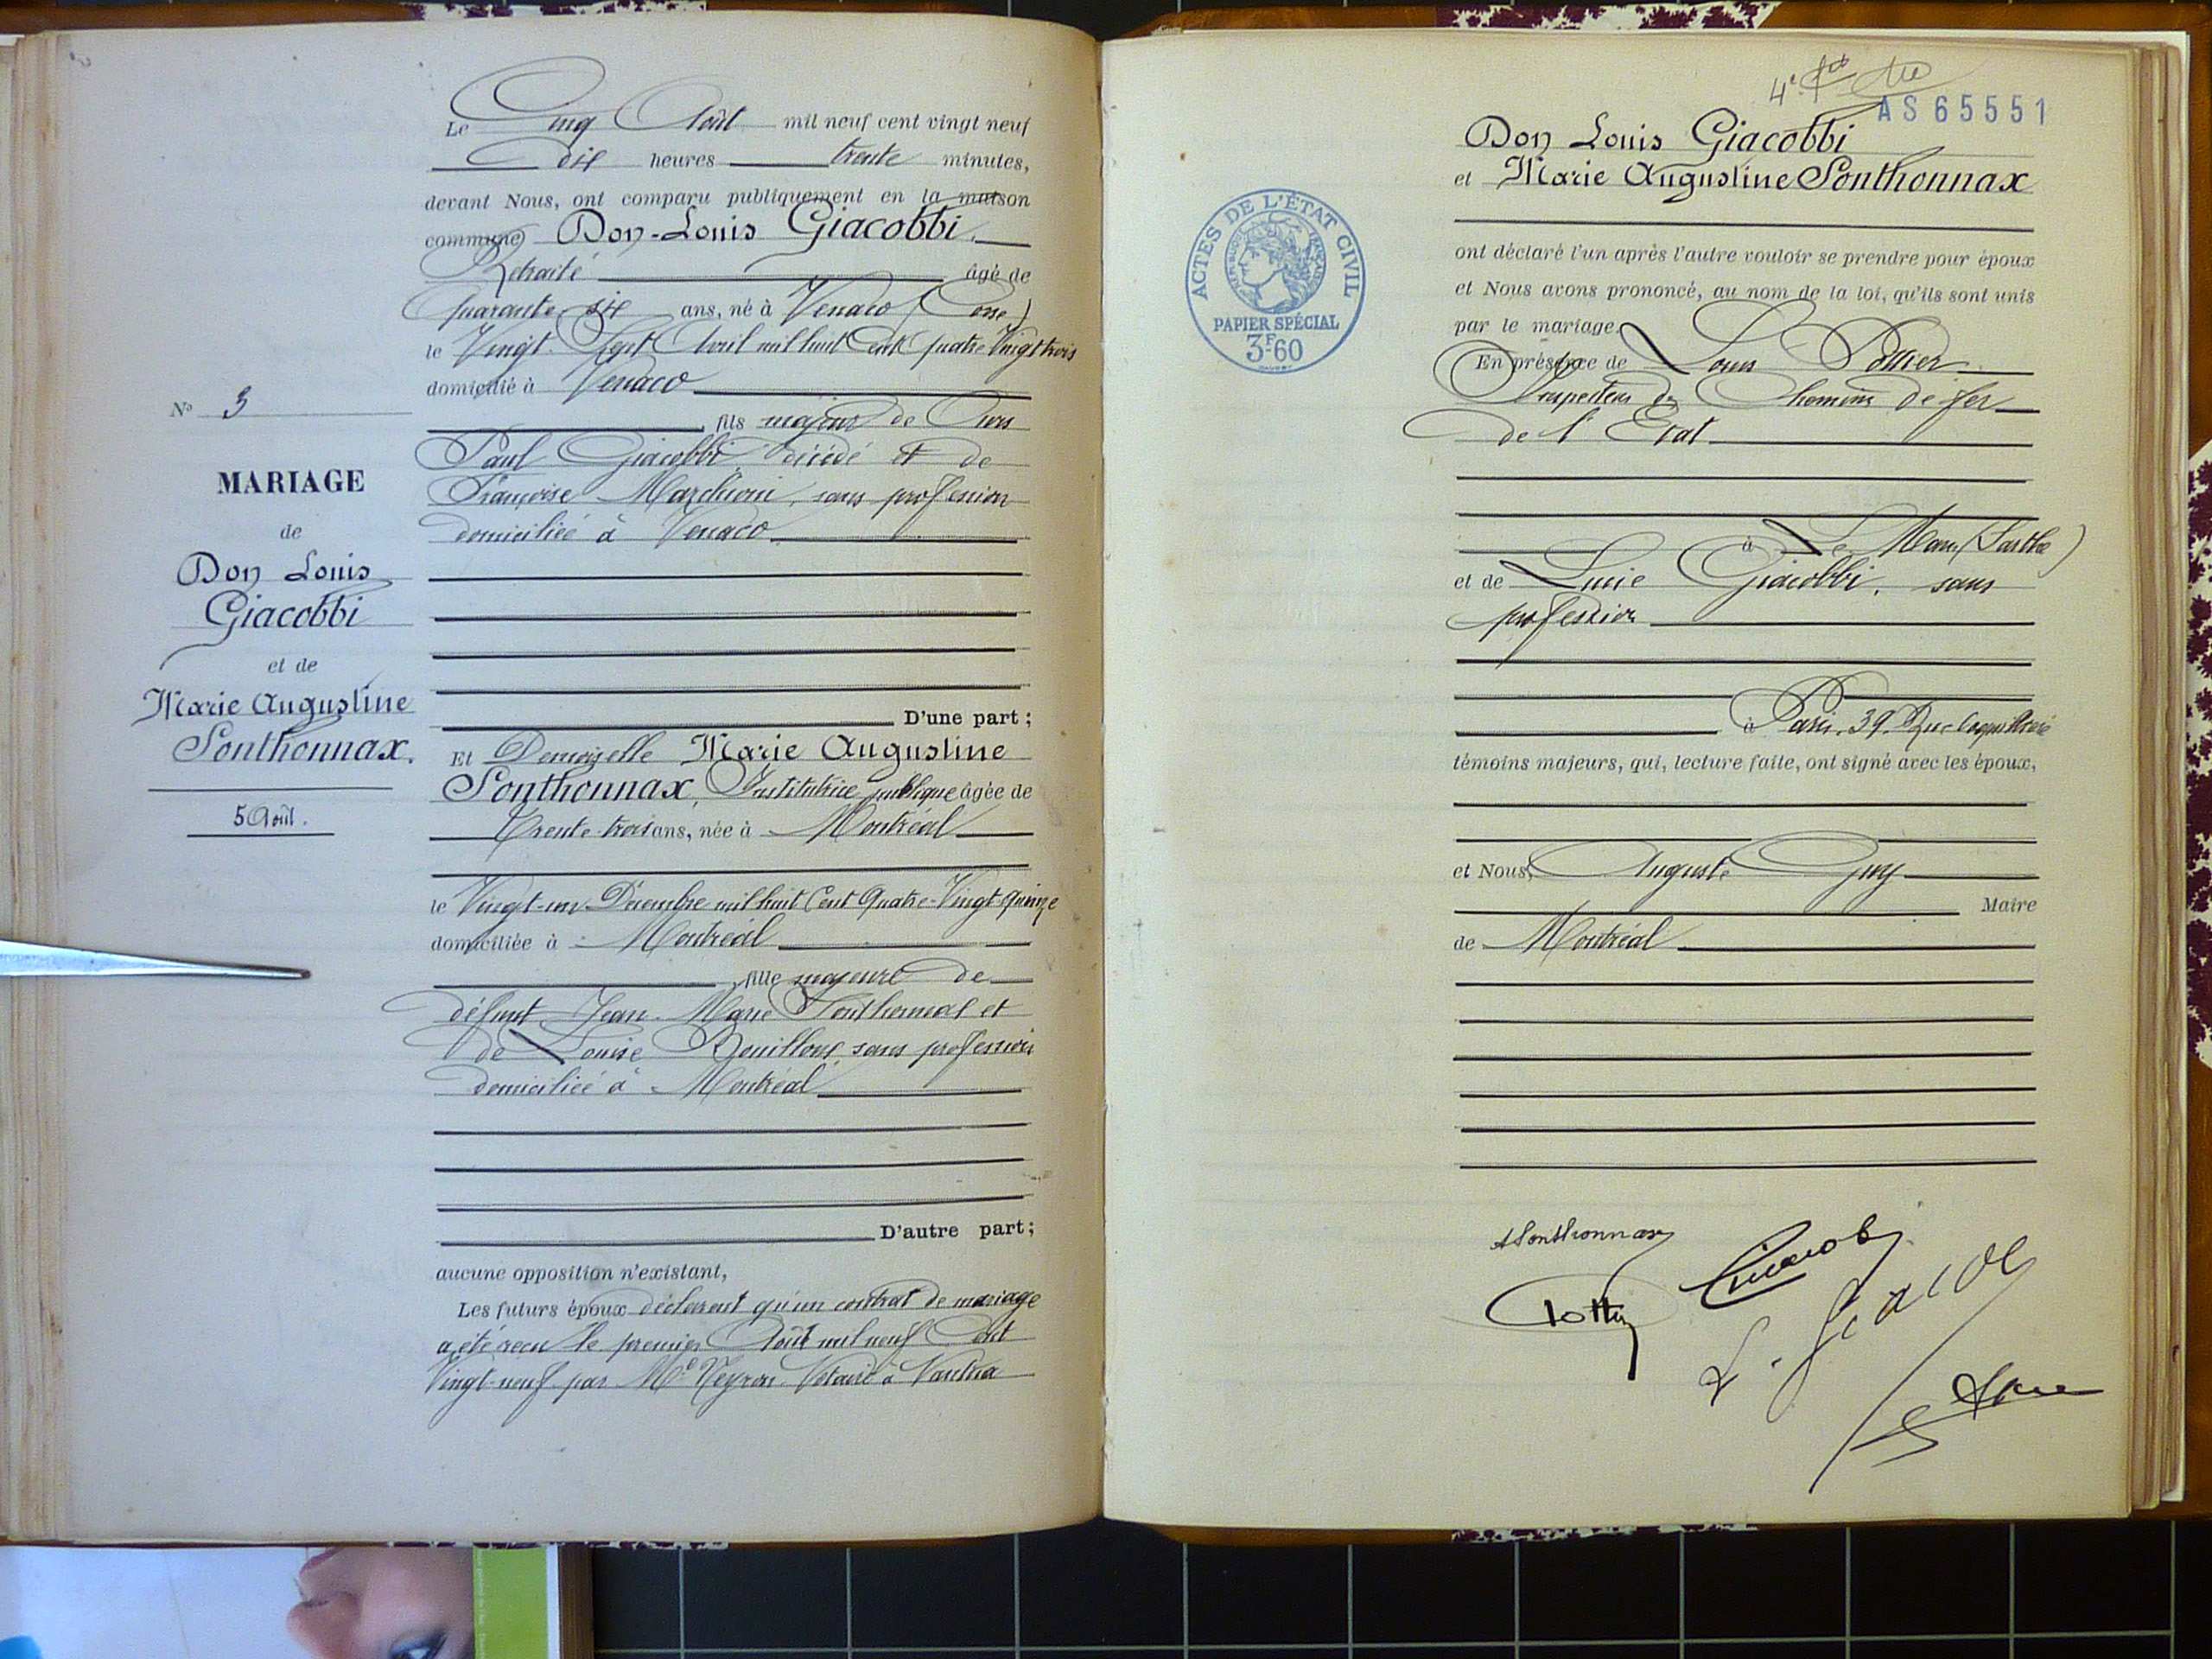 Le Cinq Août mil neuf cent vingt neuf
dix heures trente minutes,
devant Nous, ont comparu publiquement en la maison
commune Don-Louis Giacobbi.
Retraité âgé de
quarante-six ans, né à Venaco (Corse)
le Vingt-Sept Avril mil huit Cent quatre Vingt trois
domicilié à Venaco
fils majeur de Ours
Paul Giacobbi, décédé et de
Françoise Marchioni, sans profession
domiciliée à Venaco
D'une part ;
Et Demoiselle Marie Augustine
Sonthonnax, Institutrice publique âgée de
Trente-trois ans, née à Montréal
le Vingt-un Décembre mil huit Cent Quatre-Vingt-quinze
domiciliée à Montréal
fille majeure de
défunt Jean-Marie Sonthonnax et
de Louise Bouilloux, sans profession
domiciliée à Montréal
D'autre part ;
aucune opposition n'existant,
Les futurs époux déclarent qu'un contrat de mariage
a été reçu le premier Août mil neuf Cent
Vingt-neuf par Me Neyron Notaire à Nantua
No 3
MARIAGE
de
Don Louis
Giacobbi
et de
Marie Augustine
Sonthonnax.
5 Août.
AS 65551
Don Louis Giacobbi
et Marie Augustine Sonthonnax
ont déclaré l'un après l'autre vouloir se prendre pour époux
et Nous avons prononcé, au nom de la loi, qu'ils sont unis
par le mariage.
En présence de Louis Pottier
Inspecteur des Chemins de fer
de l'Etat
à Le Mans (Sarthe)
et de Lucie Giacobbi, sans
profession
à Paris, 39, Rue
témoins majeurs, qui, lecture faite, ont signé avec les époux,
et Nous, Auguste Guy
Maire
de Montréal
ACTES DE L'ÉTAT CIVIL
RÉPUBLIQUE FRANÇAISE
PAPIER SPÉCIAL
3F60
ASonthonnax
Giacobbi